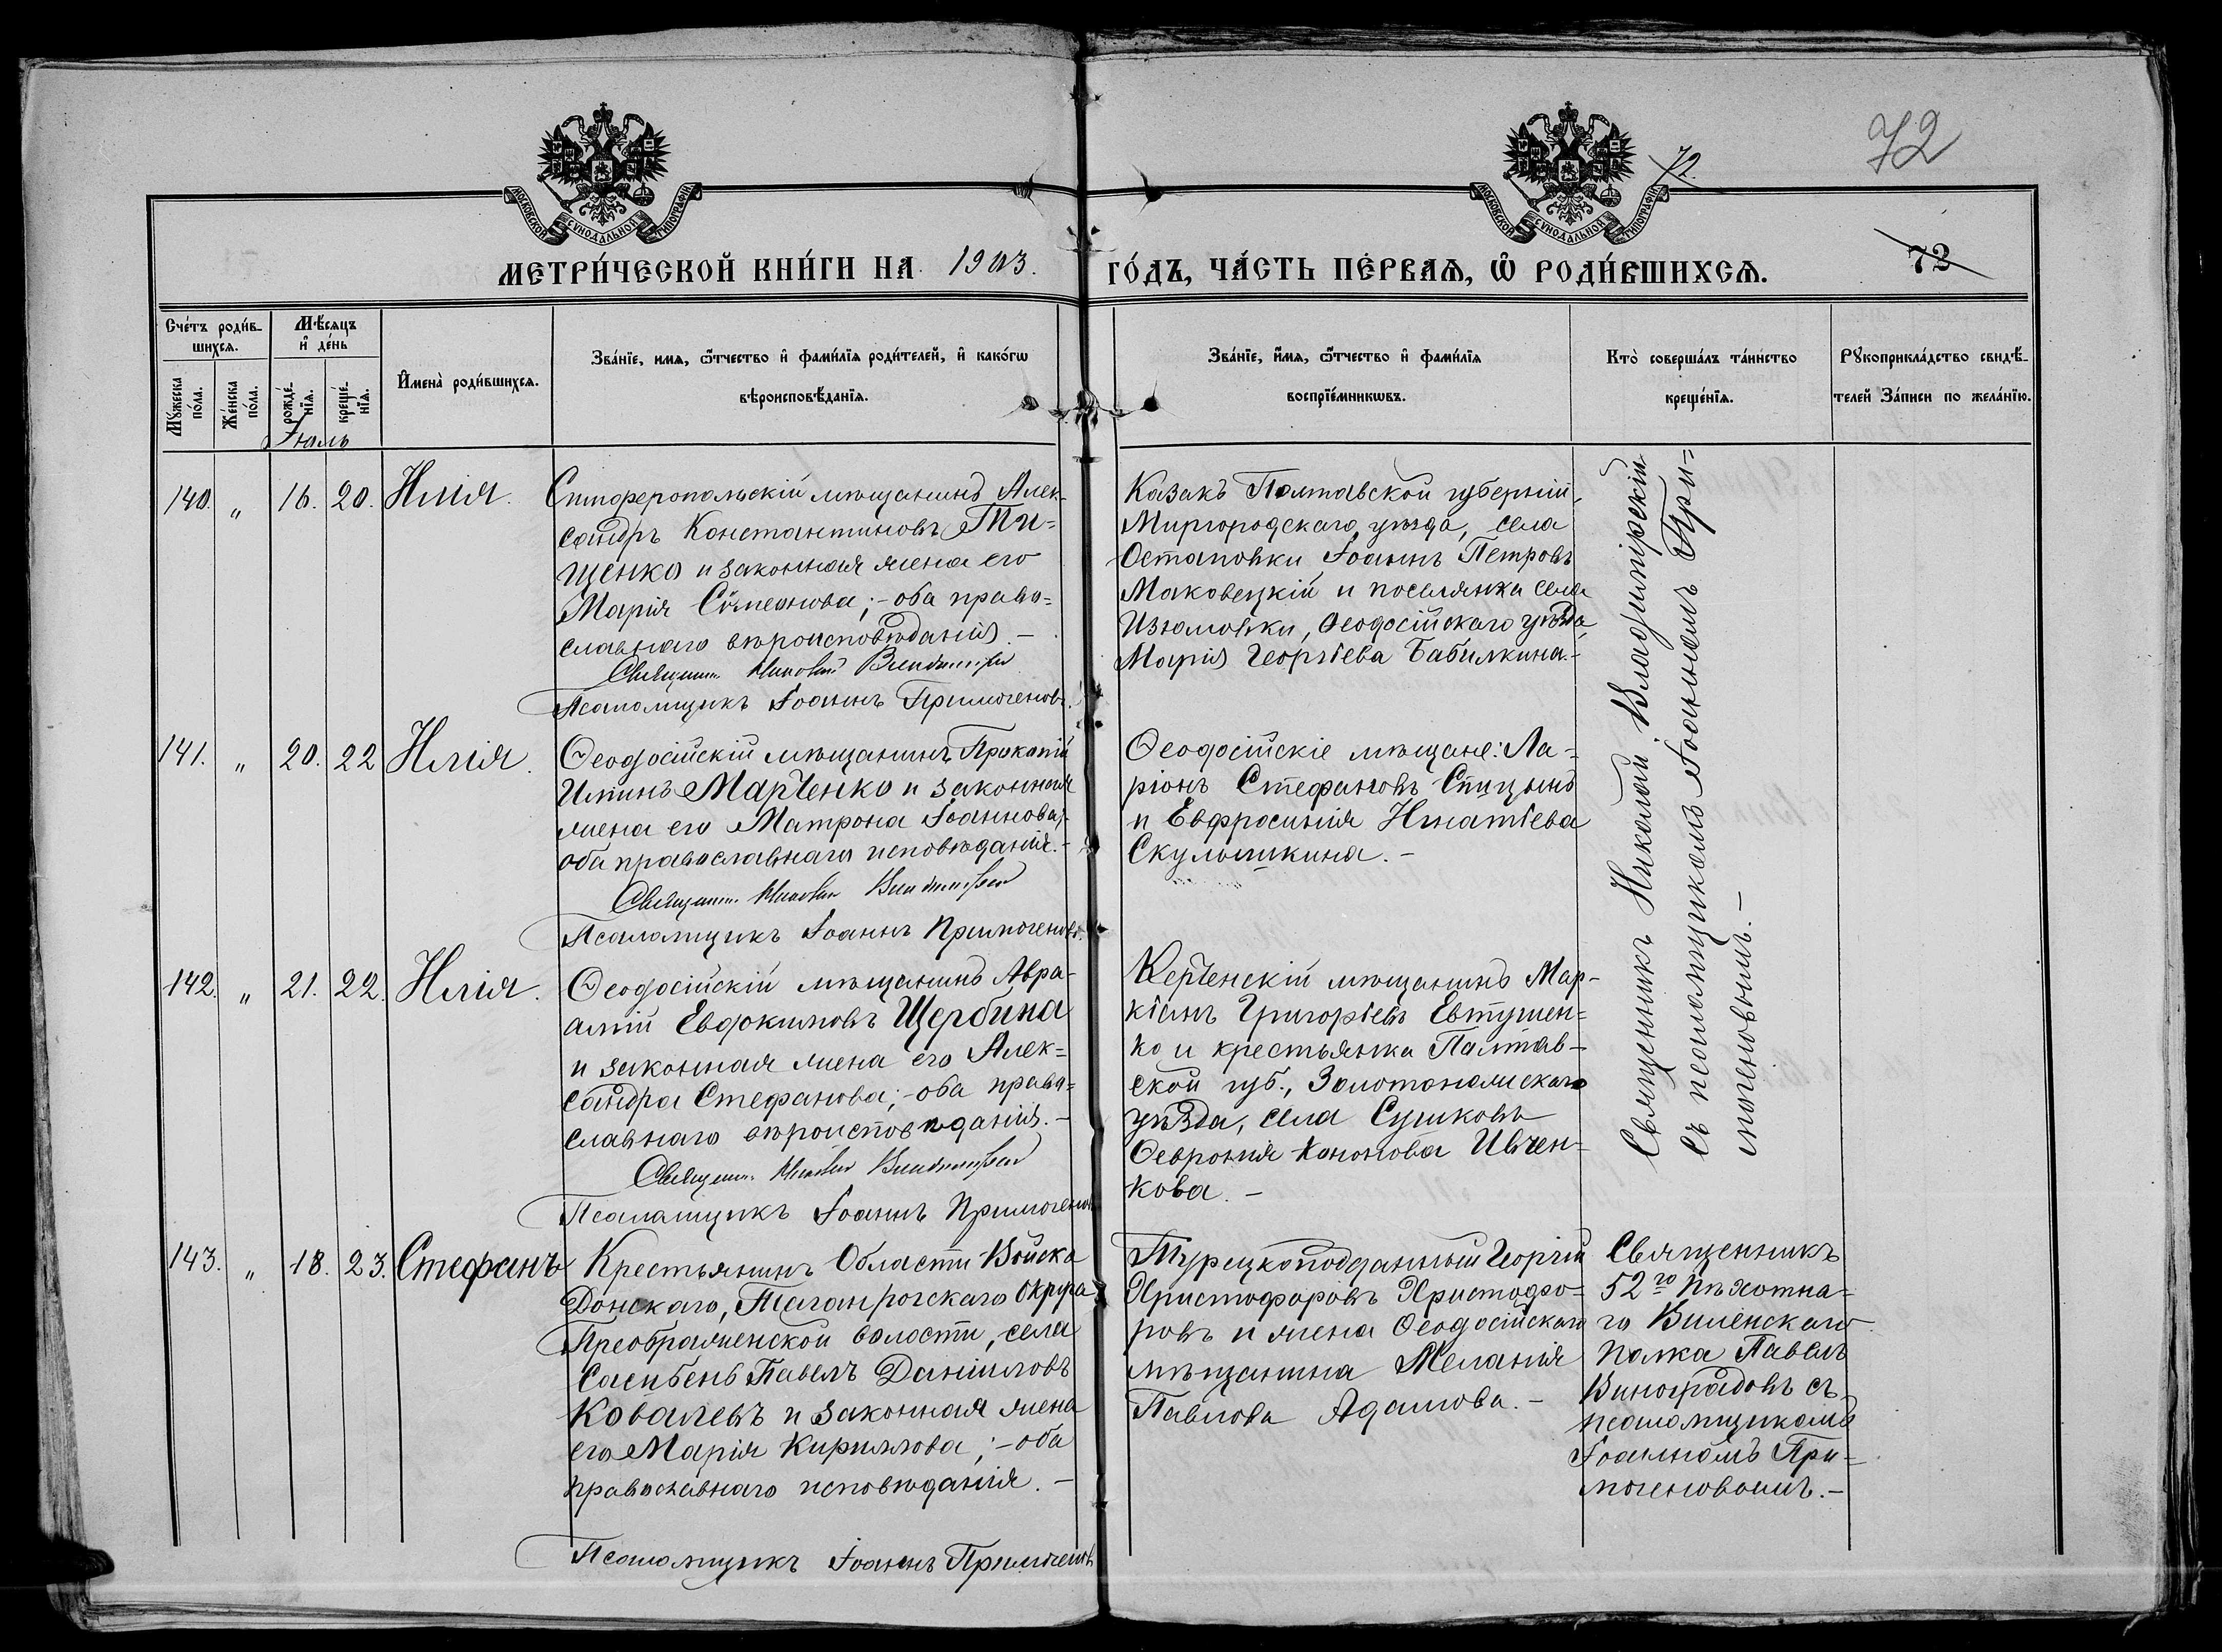 72
72.
72
МОСКОВСКОЙ СѴНОДАЛЬНОЙ ТИПОГРАФІИ
МОСКОВСКОЙ СѴНОДАЛЬНОЙ ТИПОГРАФІИ
МЕТРИ́ЧЕСКОЙ КНИ́ГИ НА 1903. ГО́ДЪ, ЧА́СТЬ ПЕ́РВАѦ, Ѿ РОДИ́ВШИХСѦ.
Сче́тъ роди́в-
шихсѧ.
Мꙋжеска по́ла.
Же́нска по́ла.
Мѣ́сѧцъ
и҆ де́нь
рожде́-
нїѧ.
креще́-
нїѧ.
И҆мена̀ роди́вшихсѧ.
Зва́нїе, имѧ, ѻ҆́тчество и҆ фами́лїѧ роди́телей, и҆ како́гѡ
вѣроисповѣ́данїѧ.
Зва́нїе, и҆́мѧ, ѻ҆́тчество и҆ фами́лїѧ
воспрїе́мникѡвъ.
Кто̀ соверша́лъ та́инство
креще́нїѧ.
Рꙋкоприкла́дство свидѣ́-
телей За́писи по жела́нїю.
Іюль
140. „ 16. 20. Илія.
Симферопольскій мѣщанинъ Алек-
сандръ Константиновъ Ти-
щенко и законная жена его
Марія Сѵмеонова; - оба право-
славнаго вѣроисповѣданія. -
Священн. Николай Владимірскій
Псаломщикъ Іоаннъ Примогеновъ.
Казакъ Полтавской губерніи,
Миргородскаго уѣзда, села
Остаповки Іоаннъ Петровъ
Маковецкій и поселянка села
Изюмовки, Ѳеодосійскаго уѣзда,
Марія Георгіева Бабилкина. -
Священникъ Николай Владимірскій
съ псаломщикомъ Іоанномъ При-
могеновымъ. -
141. „ 20. 22 Илія.
Ѳеодосійскій мѣщанинъ Прокопій
Илтинъ Марченко и законная
жена его Матрона Іоаннова, -
оба православнаго исповѣданія. -
Священн. Николай Владимірскій
Псаломщикъ Іоаннъ Примогеновъ.
Ѳеодосійскіе мѣщане: Ла-
ріонъ Стефановъ Спицынъ
и Евфросинія Игнатіева
Скулышкина. -
142. „ 21. 22. Илія.
Ѳеодосійскій мѣщанинъ Авра-
амій Евдокимовъ Щербина
и законная жена его Алек-
сандра Стефанова; - оба право-
славнаго вѣроисповѣданія. -
Священн. Николай Владимірскій
Псаломщикъ Іоаннъ Примогеновъ
Керченскій мѣщанинъ Мар-
кіанъ Григоріевъ Евтушен-
ко и крестьянка Полтав-
ской губ., Золотоношскаго
уѣзда, села Сушковъ
Ѳевронія Кононова Ивчен-
кова. -
143. „ 18. 23. Стефанъ
Крестьянинъ Области Войска
Донскаго, Таганрогскаго округа,
Преображенской волости, села
Сасибенъ Павелъ Даніиловъ
Ковалевъ и законная жена
его Марія Кириллова; - оба
православнаго исповѣданія. -
Псаломщикъ Іоаннъ Примогеновъ
Турецкоподданный Георгій
Христофоровъ Христофо-
ровъ и жена Ѳеодосійскаго
мѣщанина Меланія
Павлова Адамова. -
Священникъ
52го Пѣхотна-
го Виленскаго
полка Павелъ
Виноградовъ съ
псаломщикомъ
Іоанномъ При-
могеновымъ. -